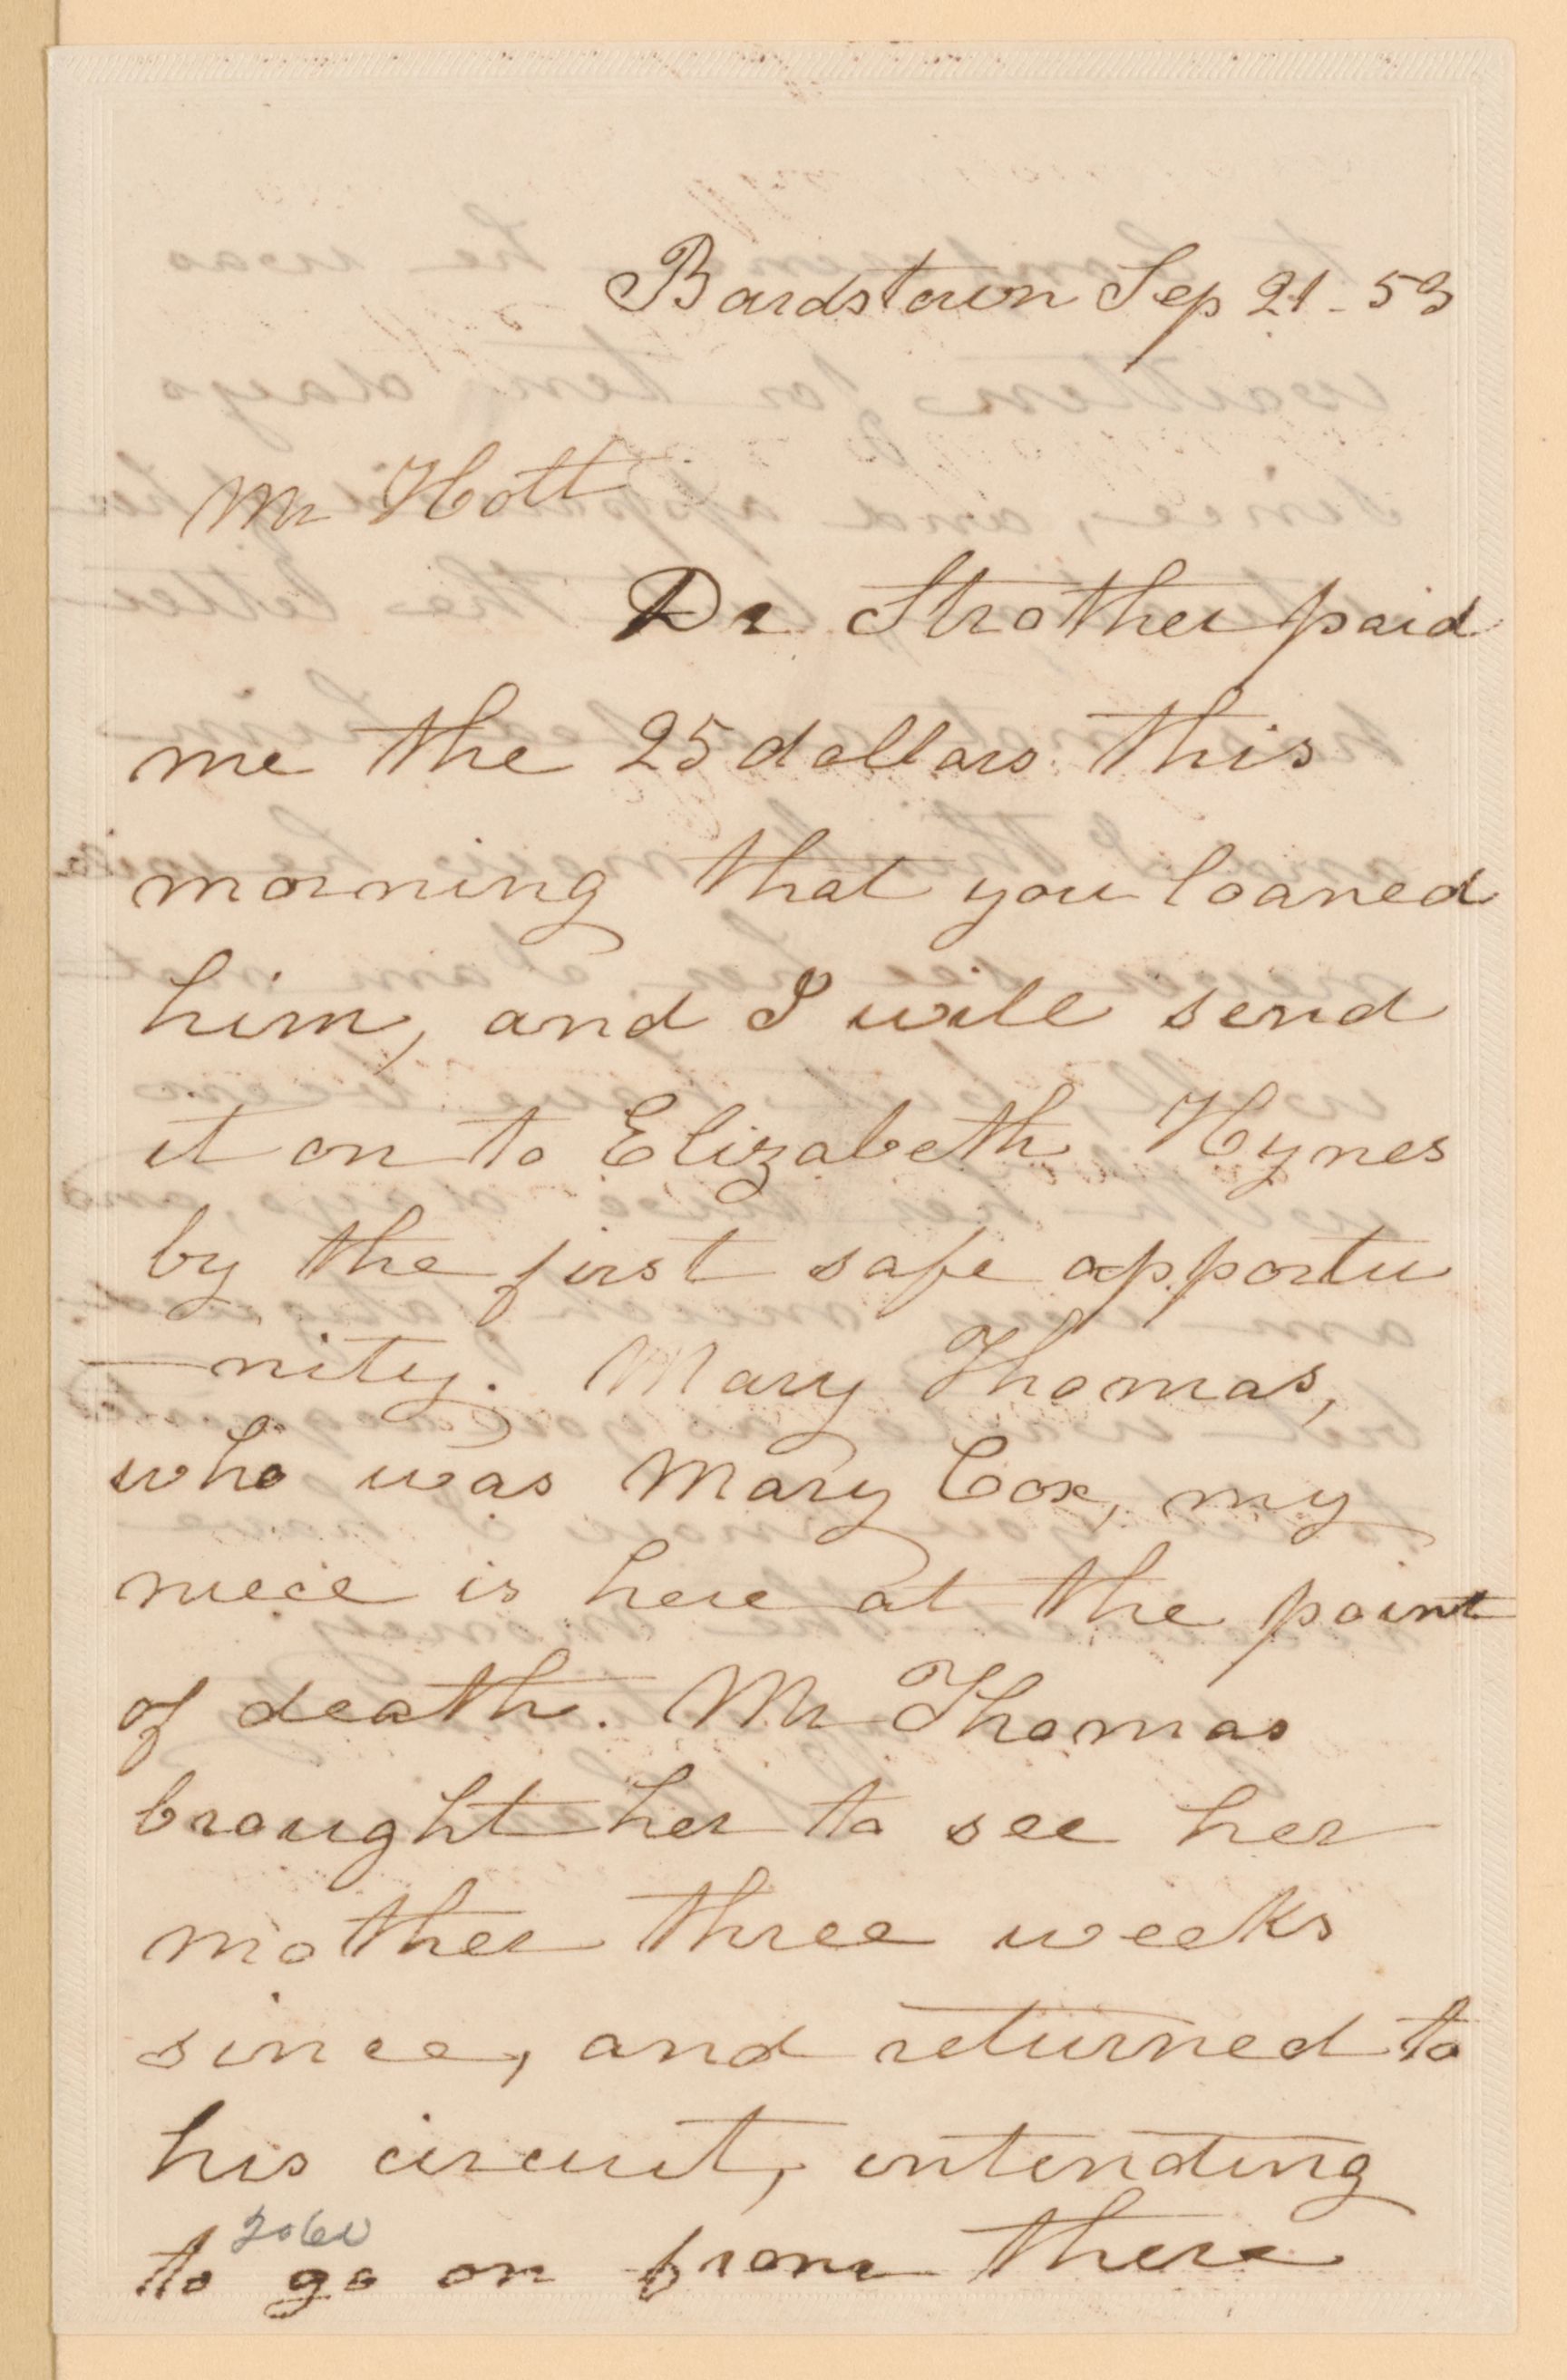 Bardstown Sep 21 - 53
Mr Hott
Dr Strother paid
me the 25 dollars this
morning that you loaned
him, and I will send
it on to Elizabeth Hynes
by the first safe opportu
-nity. Mary Thomas,
who was Mary Cox, my
niece is here at the point
of death. Mr Thomas
brought her to see her
mother three weeks
since, and returned to
his circuit, intending
to go on from there